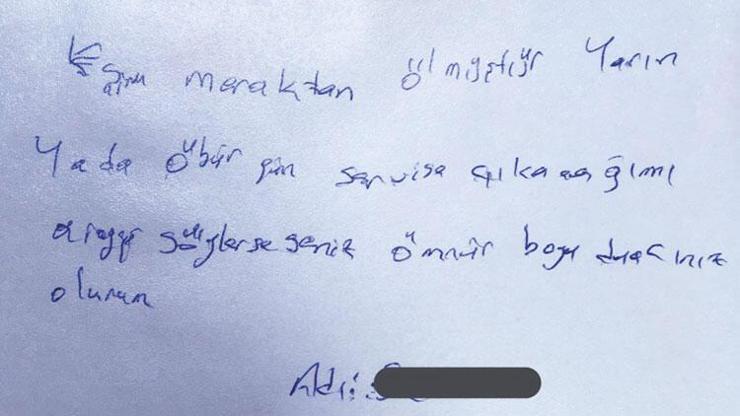 Eşim meraktan ölmüştür Yarın
Yada öbür gün servise çıkacağımı
arayıp söylerseseniz ömür boyu duacınız
olurum
Adı: S